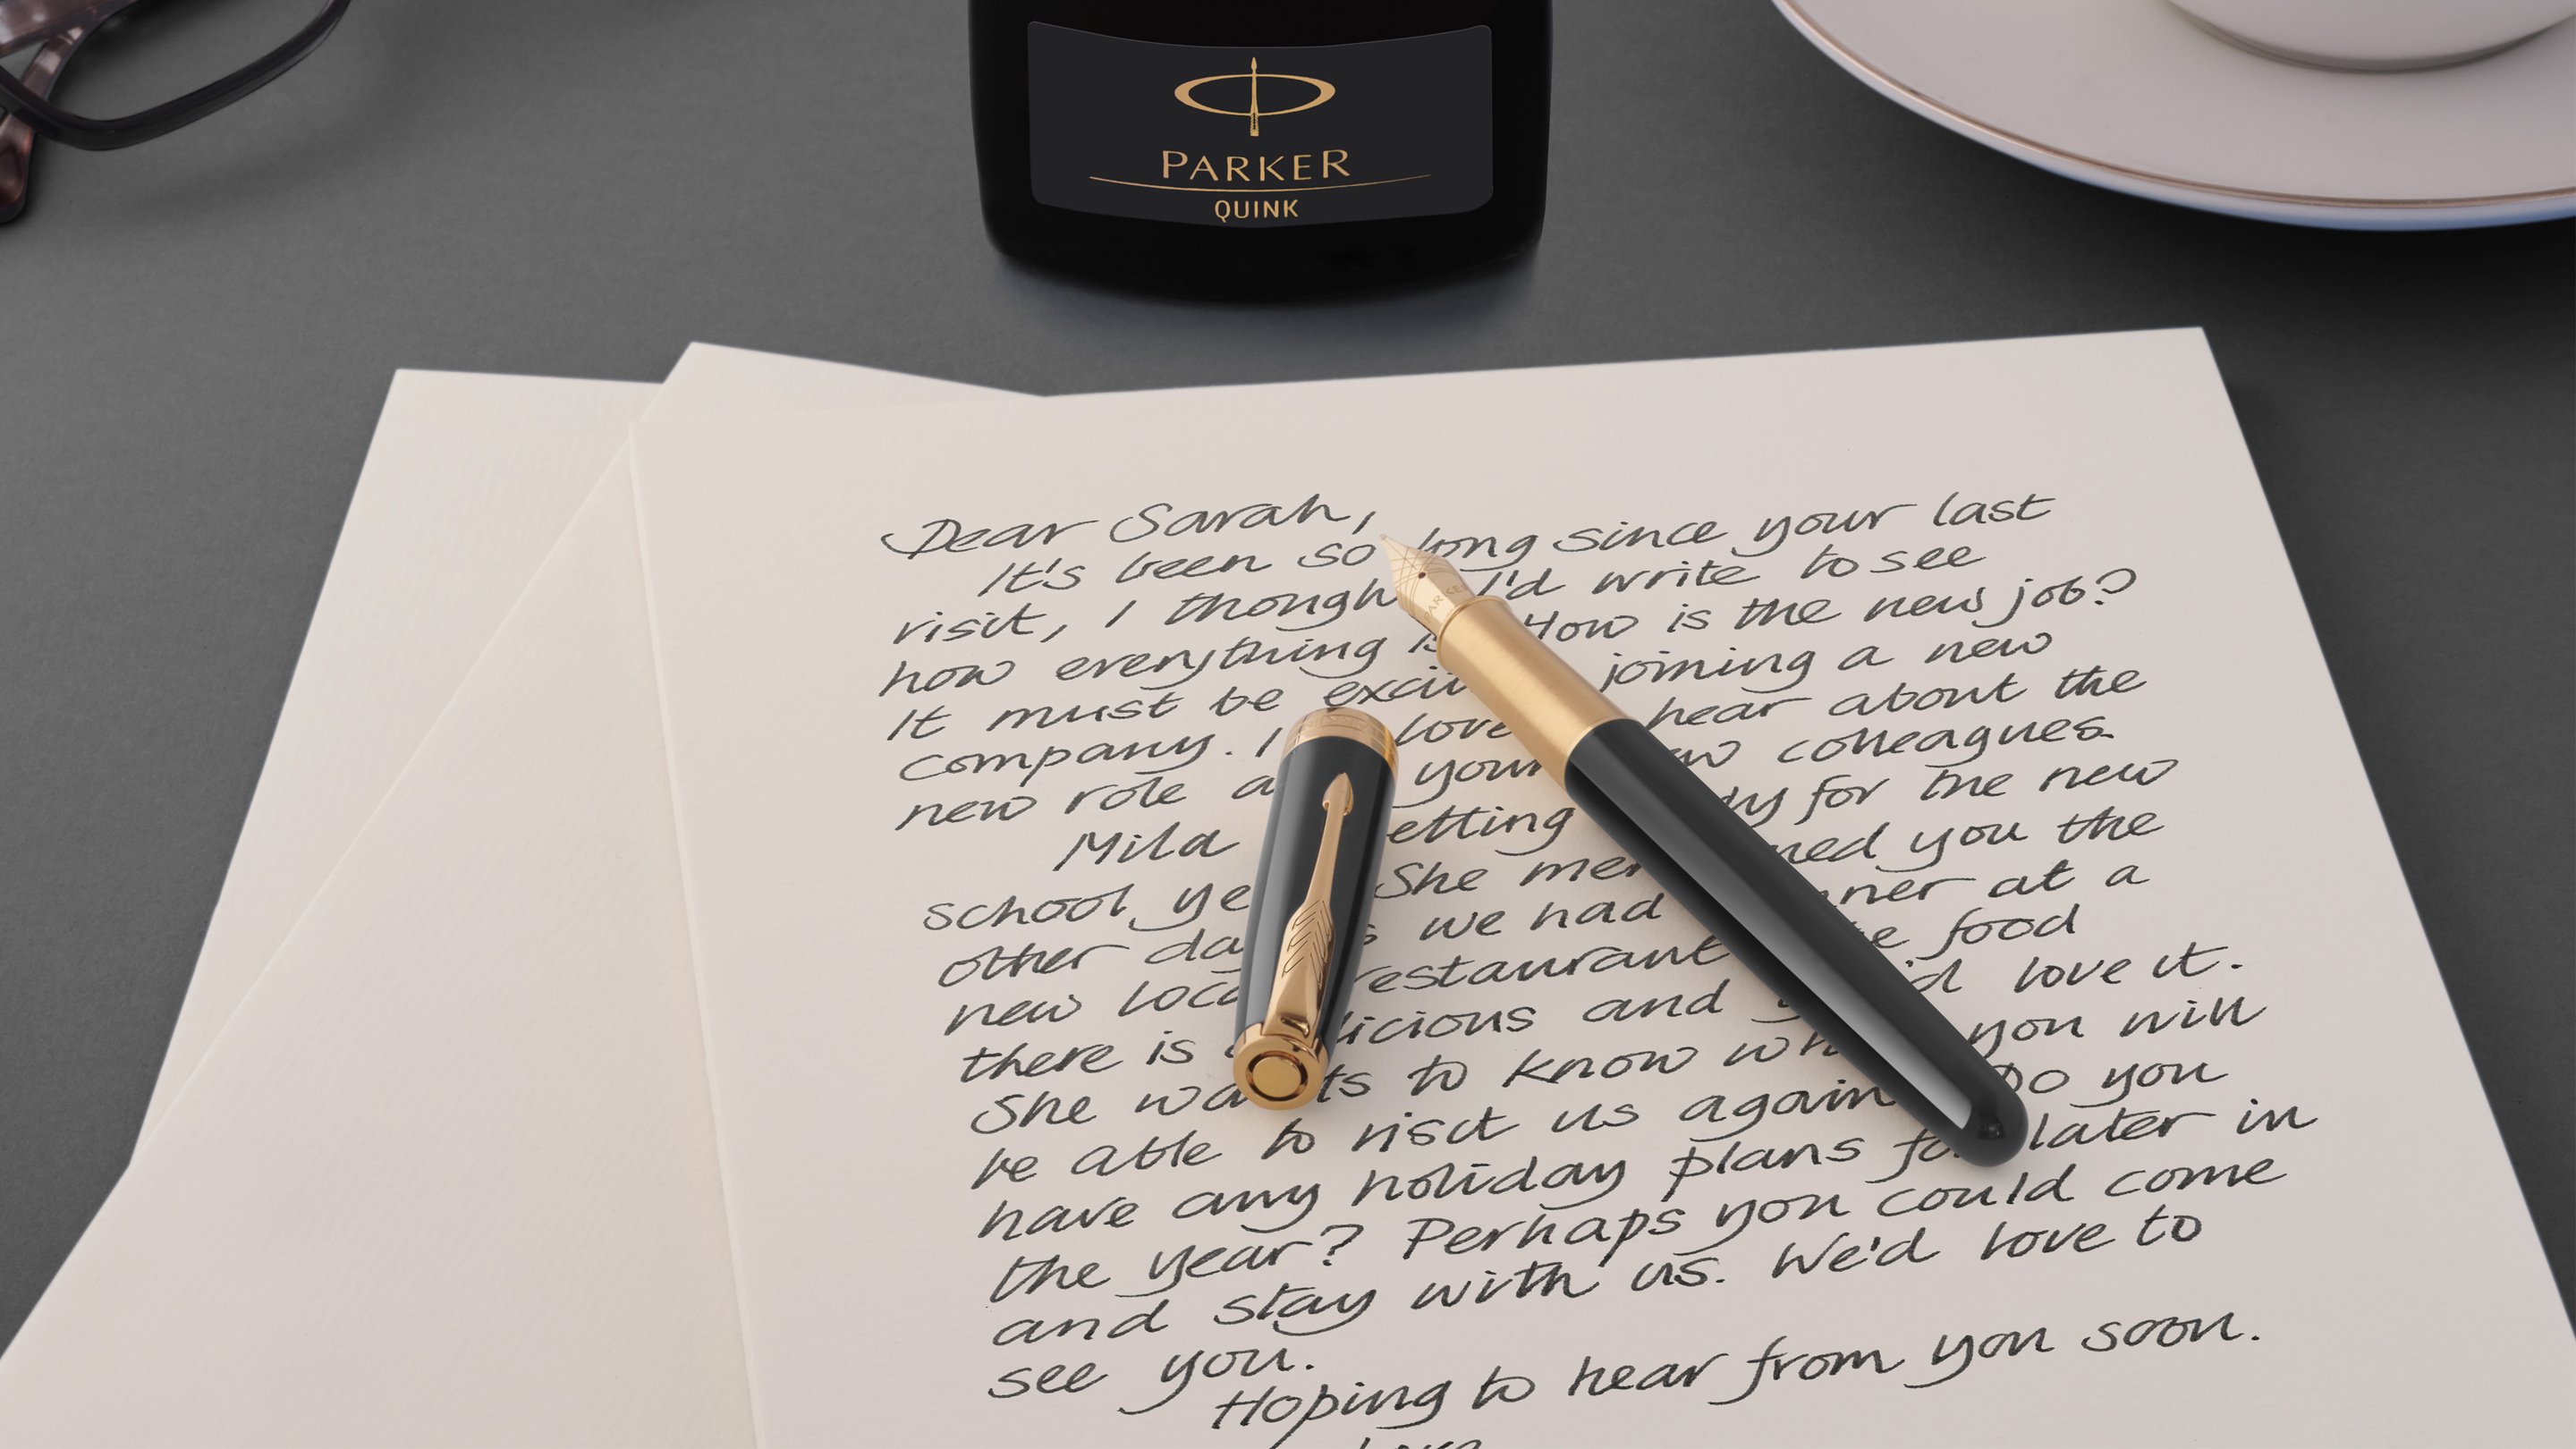 PARKER
QUINK
PARKER
Dear Sarah,
It's been so long since your last
visit, I though I'd write to see
how everything is How is the new job?
It must be joining a new
company. I love hear about the
new role your colleagues.
Mila for the new
school She you the
other we had at a
new restaurant food
there is and love it.
She wants to know you will
be able to visit us again Do you
have any holiday plans for later in
the year? Perhaps you could come
and stay with us. We'd love to
see you.
Hoping to hear from you soon.